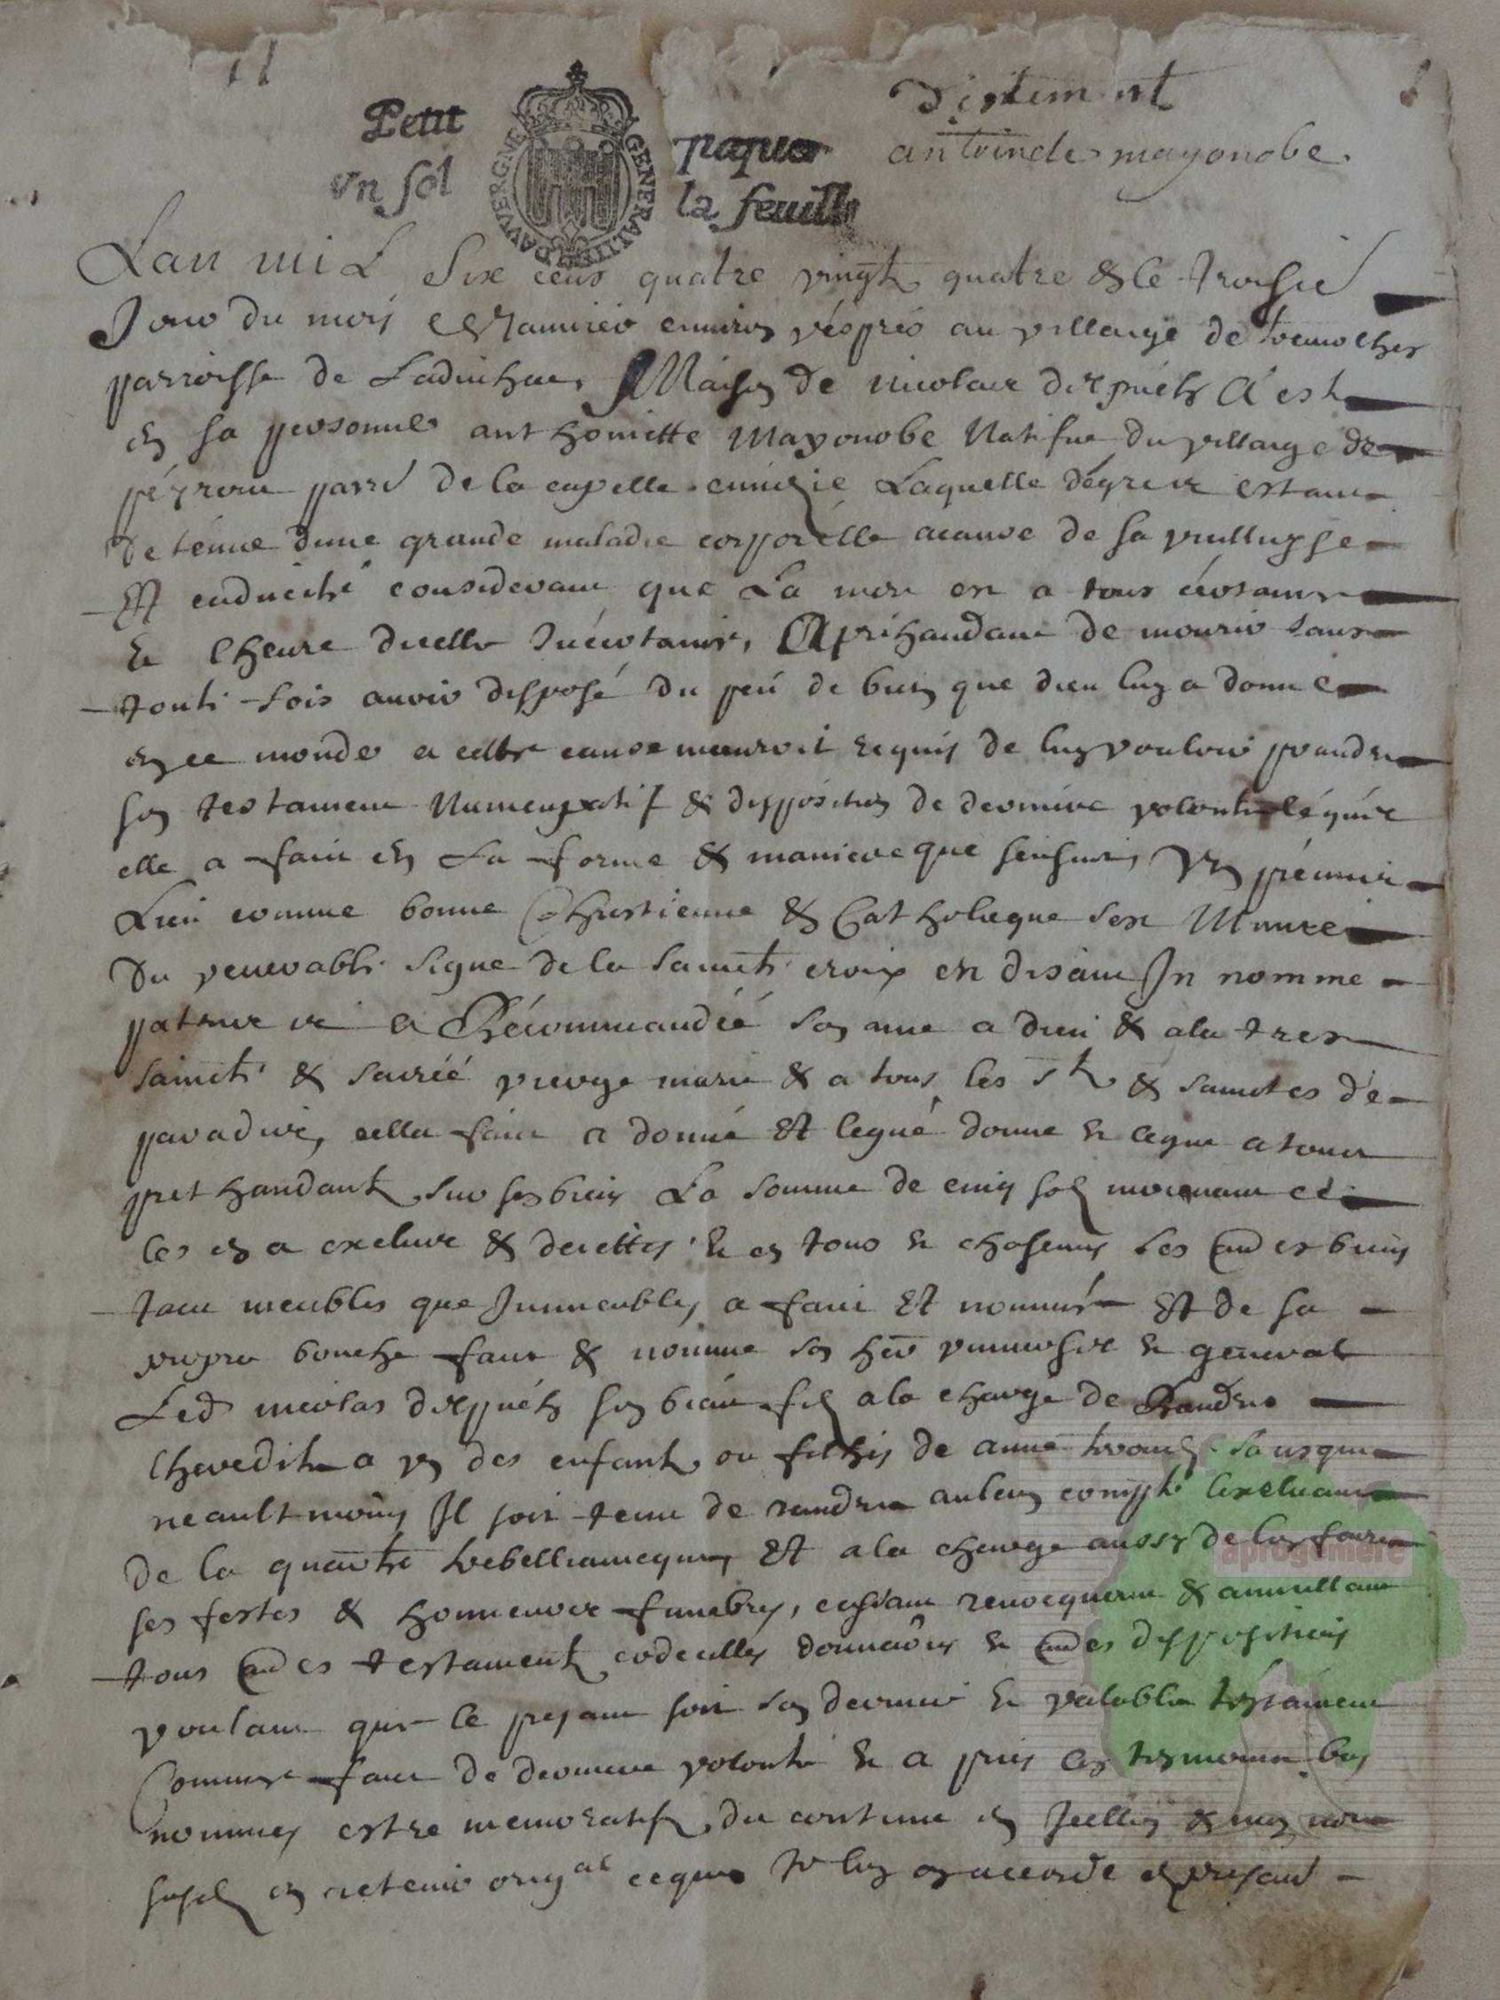 Petit papier
un sol la feuille
GENERALITE D'AUVERGNE
testiment
antoinete mayonobe
Lan mil Six cens quatre vingt quatre & le troisie
Jour du mois de Janvier environ vespres au villaige de
parroisse de Ladinhac, Maison de nicolas delpuech A est
en sa personne anthoinette Mayonobe Natifve du villaige de
parre de la capelle laquelle degree estant
detenue dune grande maladie corporelle acause de sa vielliesse
Et caducité considerant que La mort est a tous certaine
et lheure dicelle Incertaine, Aprehandant de mourir sans
toute fois avoir disposé du peu de bien que dieu luy a donné
en ce monde a cette cause mauroit requis de luy vouloir prandre
son testament Nuncupatif & disposition de derniere volonte lequel
elle a faict en La forme & maniere que sensuit, En premier
Lieu comme bonne Chrestienne & Catholicque sest Munie
du venerable signe de la saincte croix en disant In nomine
patris et a Récommandéé son ame a dieu & a la tres
saincte & sacréé vierge marie & a tous les sts & sainctes de
paradis, cella faict a donné Et legué donne et legue a tous
prethandants sur ses biens La somme de cinq sols moienant ce
les en a exclus & dejettés et en tous et chascungs ses autres biens
tant meubles que Immeubles, a faict Et nommé Et de sa
propre bouche faict & nomme son her universel et general
Led nicolas delpuech son beau fils a la charge de Randre
lheredite a un des enfants ou filhes de anne sans que
neaultmoings Il soit tenu de randre aulcung compte lexeluant
de la quarte trebellianicque, Et a la charge aussy de luy faire
ses festes & honneurs funebres, cassant revocquant & annullant
tous autres testaments codicilles donnations et autres dispositions
voulant que le presant soit son dernier et valable testament
Comme faict de derniere volonté et a prié les tesmoins bas
nommes estre memoratifs du contenu en Icelluy & moy nore
soubsne en retenir origal ce que Je luy ay accorde en presance
aprogemere